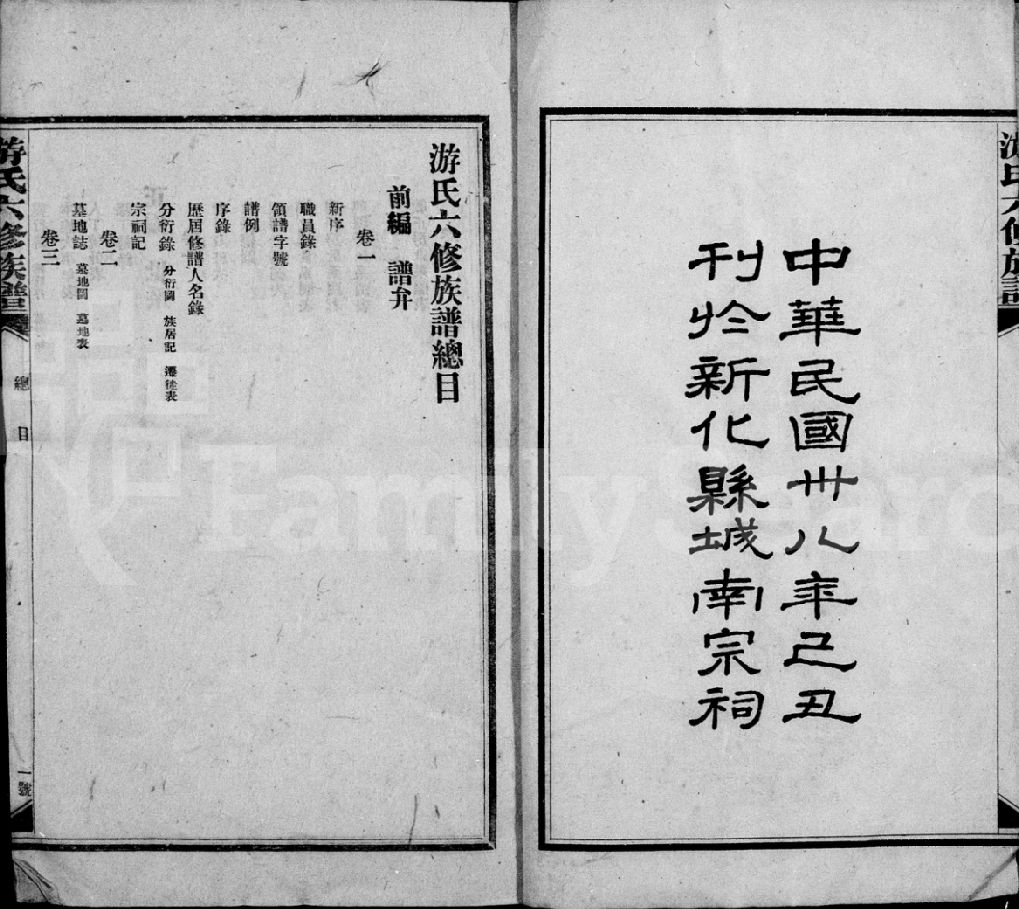 中華民國卅八年己丑
刊於新化縣城南宗祠
游氏六修族譜總目
前編 譜弁
卷一
新序
職員錄
領譜字號
譜例
序錄
歷屆修譜人名錄
分衍錄 分衍圖 族居記 遷徙表
宗祠記
卷二
墓地誌 墓地圖 墓地表
卷三
游氏六修族譜
總目
一號
FamilySearch